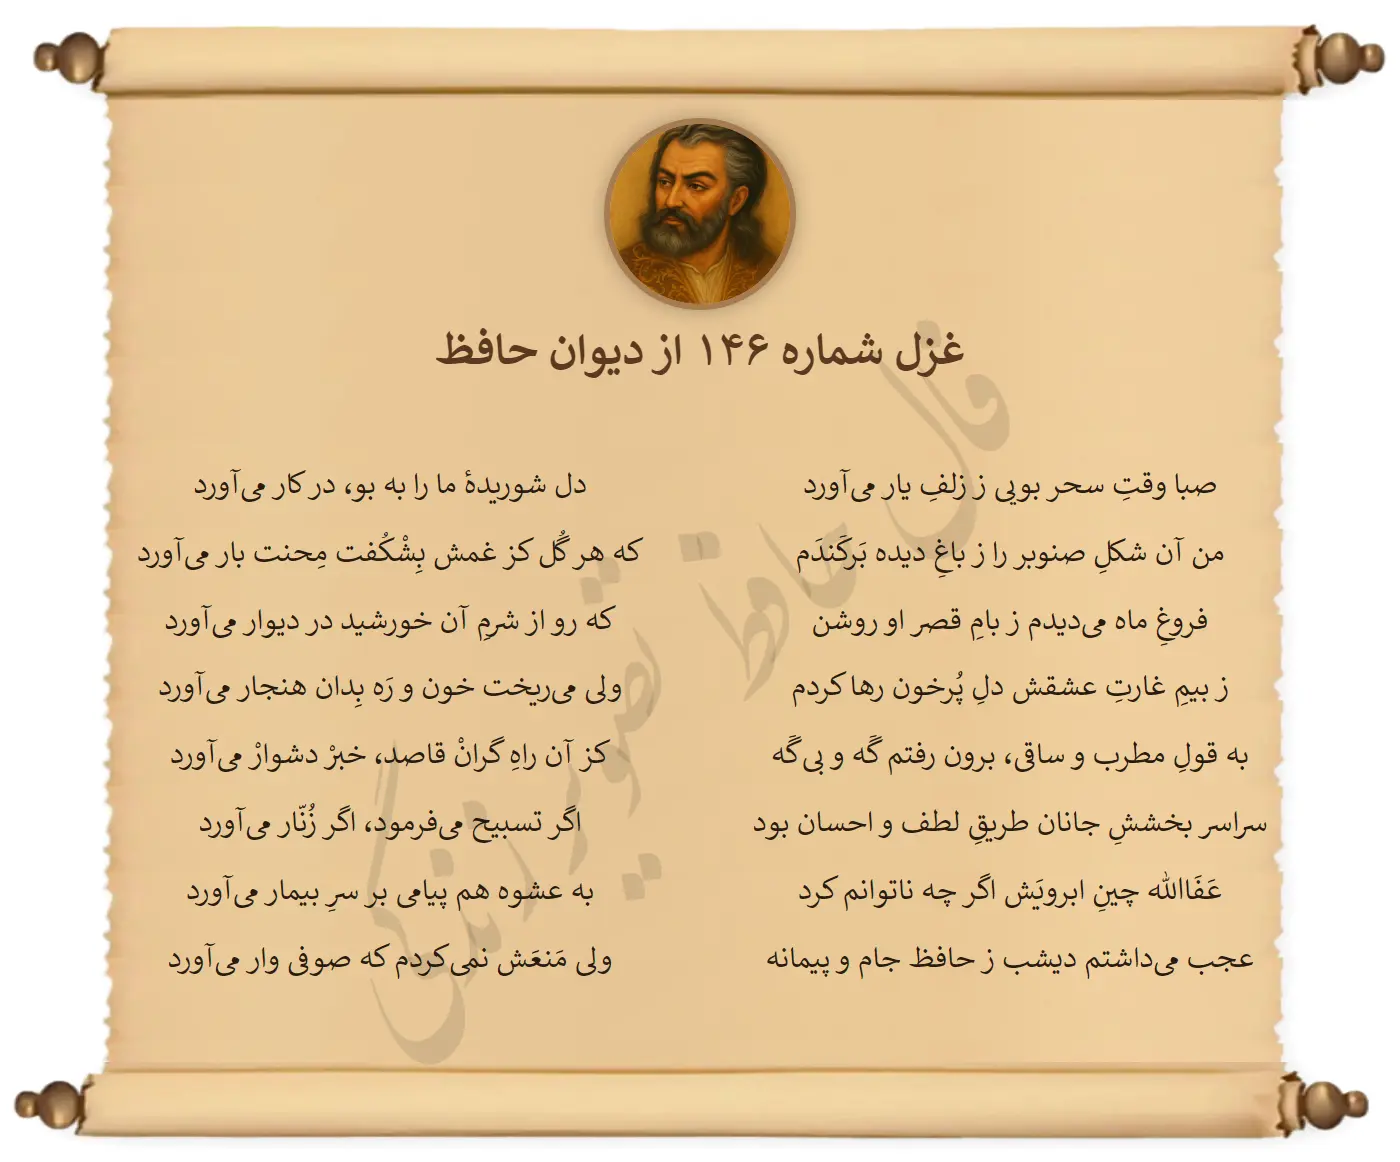 غزل شماره ۱۴۶ از دیوان حافظ
صبا وقتِ سحر بویی ز زلفِ یار می‌آورد
دل شوریدهٔ ما را به بو، در کار می‌آورد
من آن شکلِ صنوبر را ز باغِ دیده بَرکَندَم
که هر گُل کز غمش بِشْکُفت مِحنت بار می‌آورد
فروغِ ماه می‌دیدم ز بامِ قصر او روشن
که رو از شرمِ آن خورشید در دیوار می‌آورد
ز بیمِ غارتِ عشقش دلِ پُرخون رها کردم
ولی می‌ریخت خون و رَه بِدان هنجار می‌آورد
به قولِ مطرب و ساقی، برون رفتم گَه و بی‌گَه
کز آن راهِ گرانْ قاصد، خبرْ دشوارْ می‌آورد
سراسر بخششِ جانان طریقِ لطف و احسان بود
اگر تسبیح می‌فرمود، اگر زُنّار می‌آورد
عَفَاالله چینِ ابرویَش اگر چه ناتوانم کرد
به عشوه هم پیامی بر سرِ بیمار می‌آورد
عجب می‌داشتم دیشب ز حافظ جام و پیمانه
ولی مَنعَش نمی‌کردم که صوفی وار می‌آورد
فال حافظ تصویر زندگی